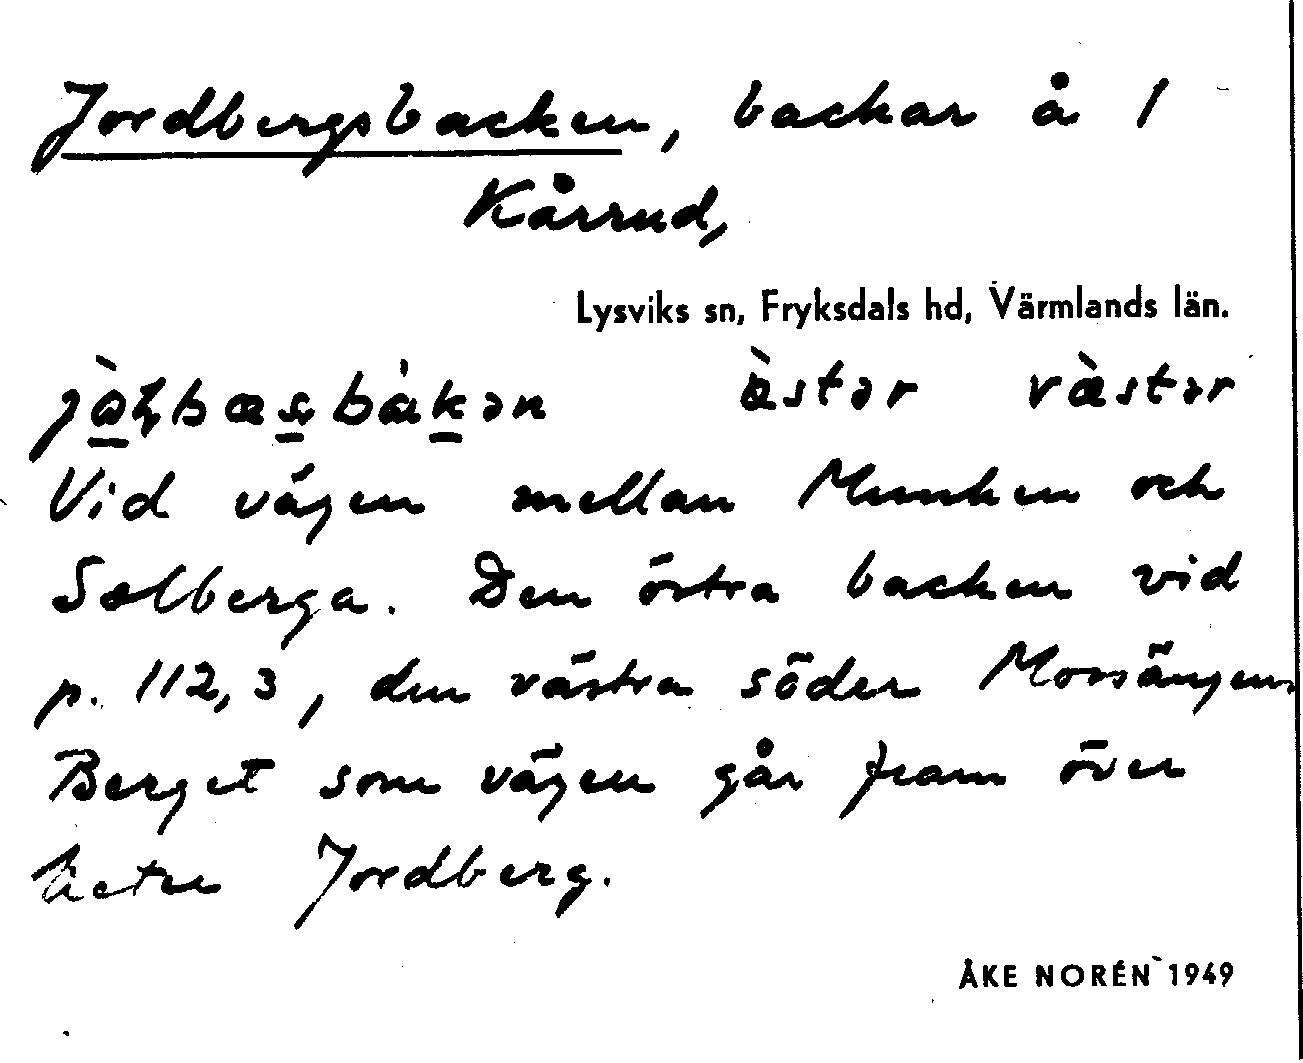 Jordbergsbacken, backar å 1
Kårrud,
Lysviks sn, Fryksdals hd, Värmlands län.
östər västər
Vid vägen mellan Munken och
Solberga. Den östra backen vid
p. 112,3, den västra söder Mossängen.
Berget som vägen går fram över
heter Jordberg.
ÅKE NORÉN 1949